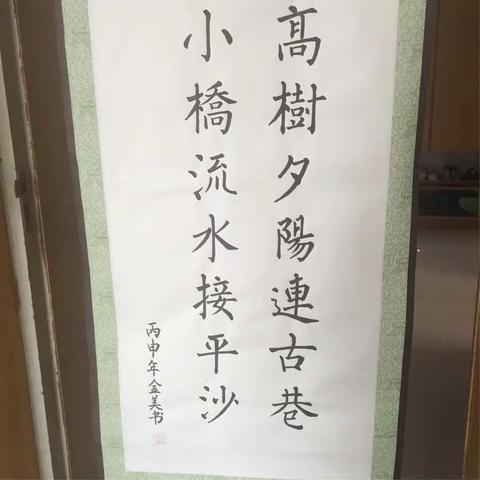 高樹夕陽連古巷
小橋流水接平沙
丙申年金美书